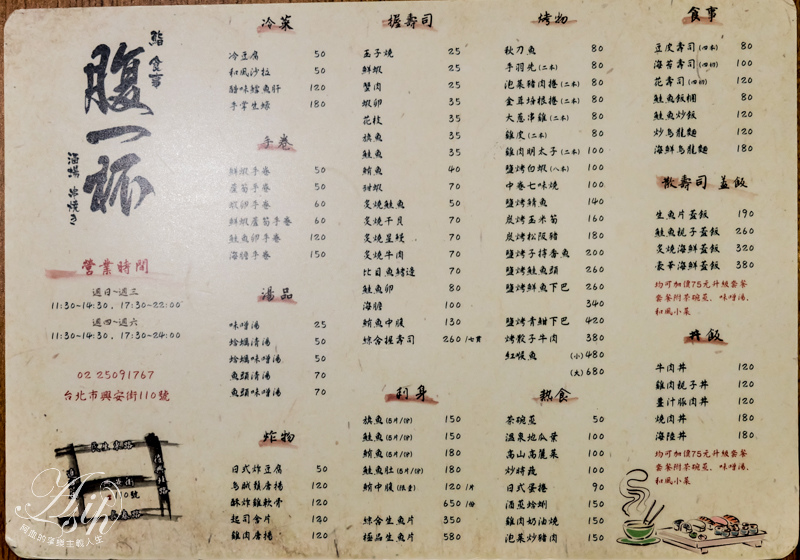 鮨 食事
腹一杯
酒場 串焼き
營業時間
週日~週三
11:30~14:30，17:30~22:00
週四~週六
11:30~14:30，17:30~24:00
02 25091767
台北市興安街110號
冷菜
冷豆腐 50
和風沙拉 50
醋味鱈魚肝 120
手掌生蠔 180
手卷
鮮蝦手卷 50
蘆筍手卷 50
蝦卵手卷 60
鮮蝦蘆筍手卷 60
鮭魚卵手卷 120
海膽手卷 150
湯品
味噌湯 25
蛤蠣清湯 50
蛤蠣味噌湯 50
魚頭清湯 70
魚頭味噌湯 70
炸物
日式炸豆腐 50
烏賊鬚唐揚 120
酥炸雞軟骨 120
起司合片 120
雞肉唐揚 120
握壽司
玉子燒 25
鮮蝦 25
蟹肉 25
蝦卵 35
花枝 35
旗魚 35
鮭魚 35
鮪魚 40
甜蝦 70
炙燒鮭魚 50
炙燒干貝 70
炙燒星鰻 70
炙燒牛肉 70
比目魚鰭邊 70
鮭魚卵 80
海膽 100
鮪魚中腹 130
綜合握壽司 260 /七貫
刺身
旗魚(5片/份) 150
鮭魚(5片/份) 150
鮪魚(5片/份) 180
鮭魚肚(5片/份) 180
鮪中腹(限量) 120 /片
650 /份
綜合生魚片 350
極品生魚片 580
烤物
秋刀魚 80
手羽先(二本) 80
泡菜豬肉捲(二本) 80
金茸培根捲(二本) 80
大蔥串雞(二本) 80
雞皮(二本) 80
雞肉明太子(二本) 100
鹽烤白蝦(八本) 100
中卷七味燒 100
鹽烤鯖魚 140
炭烤玉米筍 160
炭烤松阪豬 180
鹽烤子持香魚 200
鹽烤鮭魚頭 260
鹽烤鮮魚下巴 260
340
鹽烤青魽下巴 420
烤骰子牛肉 380
紅喉魚 (小)480
(大)680
熱食
茶碗蒸 50
溫泉地瓜葉 100
高山高麗菜 100
炒時蔬 100
日式蛋捲 90
酒蒸蛤蜊 150
雞肉奶油燒 150
泡菜炒豬肉 150
食事
豆皮壽司(四本) 80
海苔壽司(四切) 100
花壽司(四切) 120
鮭魚飯糰 80
鮭魚炒飯 120
炒烏龍麵 120
海鮮烏龍麵 180
散壽司 蓋飯
生魚片蓋飯 190
鮭魚親子蓋飯 260
炙燒海鮮蓋飯 320
豪華海鮮蓋飯 380
均可加價75元升級套餐
套餐附茶碗蒸，味噌湯，
和風小菜
丼飯
牛肉丼 120
雞肉親子丼 120
薑汁豚肉丼 120
燒肉丼 180
海陸丼 180
均可加價75元升級套餐
套餐附茶碗蒸，味噌湯，
和風小菜
110號